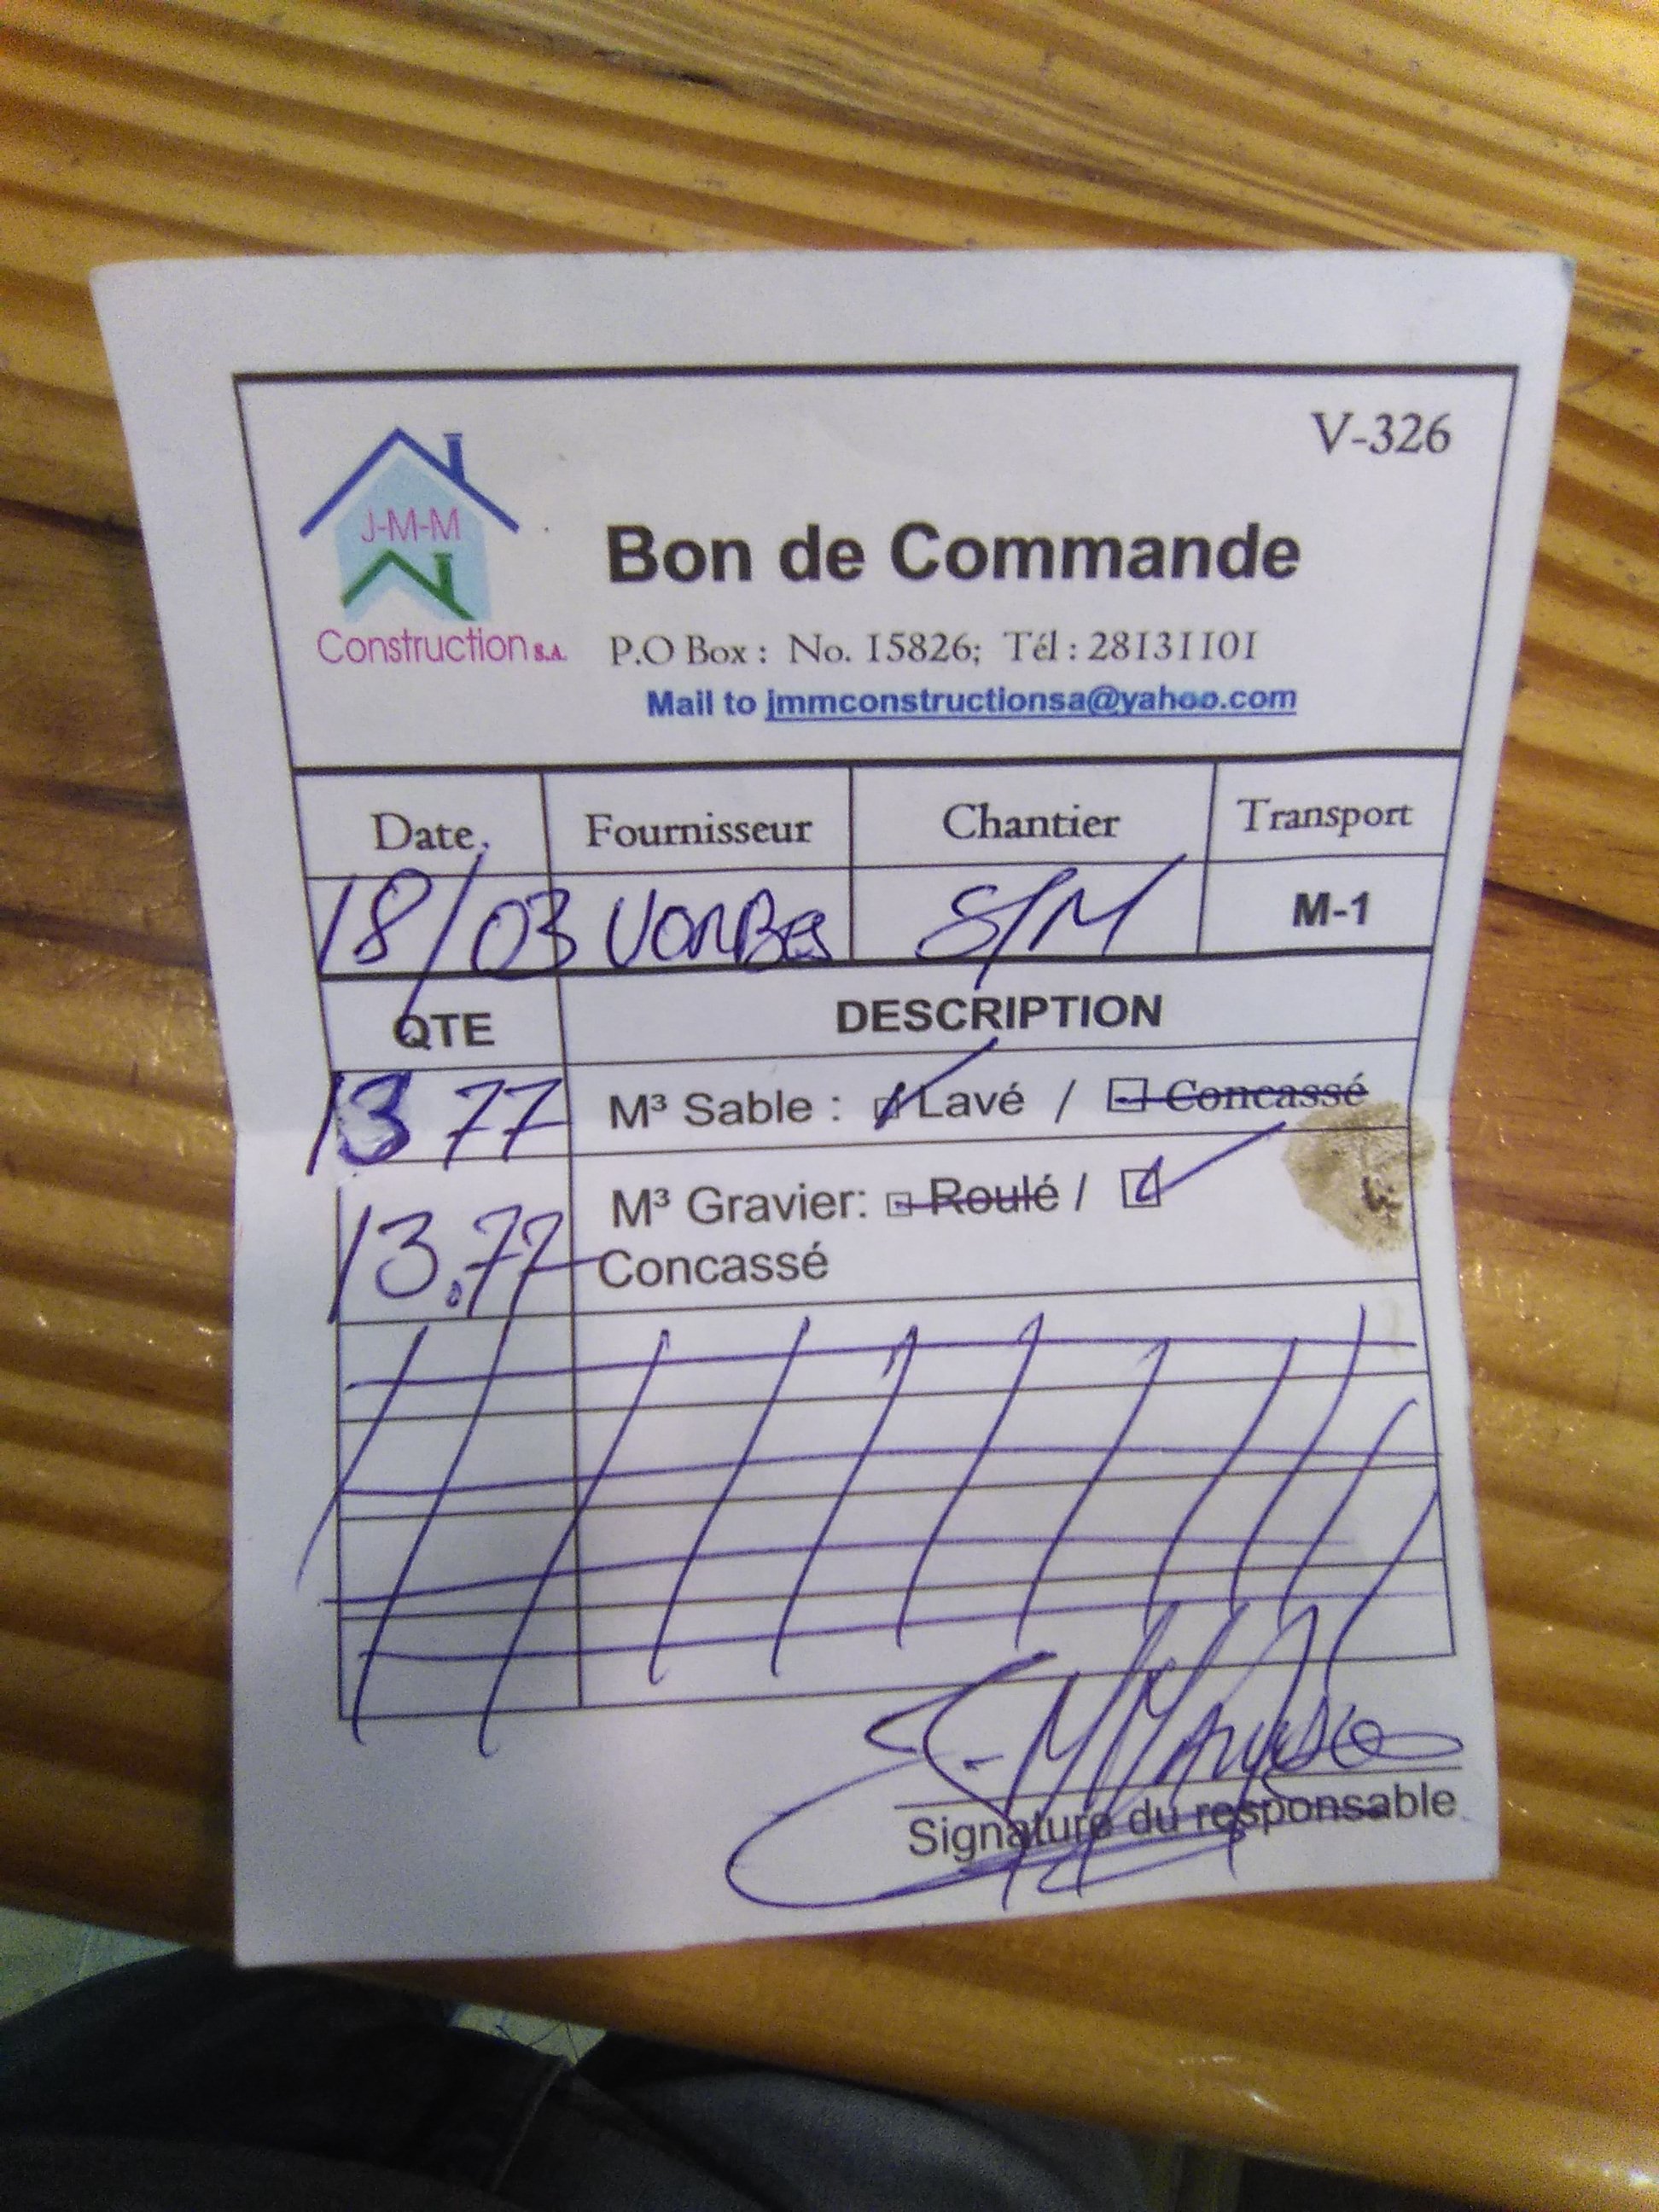 V-326
J-M-M
Construction S.A.
Bon de Commande
P.O Box : No. 15826; Tél : 28131101
Mail to jmmconstructionsa@yahoo.com
Date Fournisseur Chantier Transport
18/03 VORBES S/M M-1
QTE DESCRIPTION
13 77 M³ Sable : Lavé / Concassé
13.77 M³ Gravier: Roulé /
Concassé
Signature du responsable